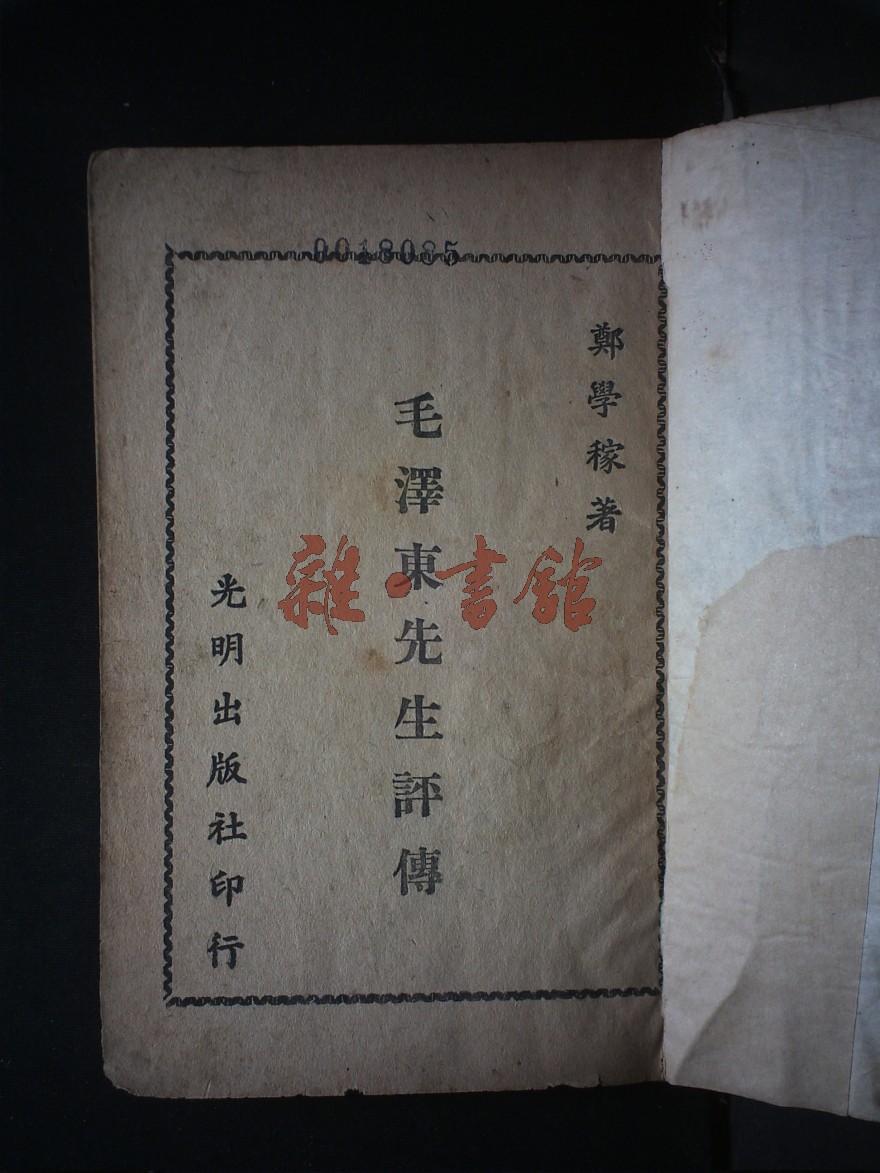 0018085
鄭學稼著
毛澤東先生評傳
光明出版社印行
雜·書館